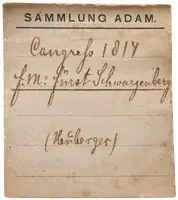 SAMMLUNG ADAM.
Congress 1814
f. m. Fürst Schwarzenberg
(Heuberger)